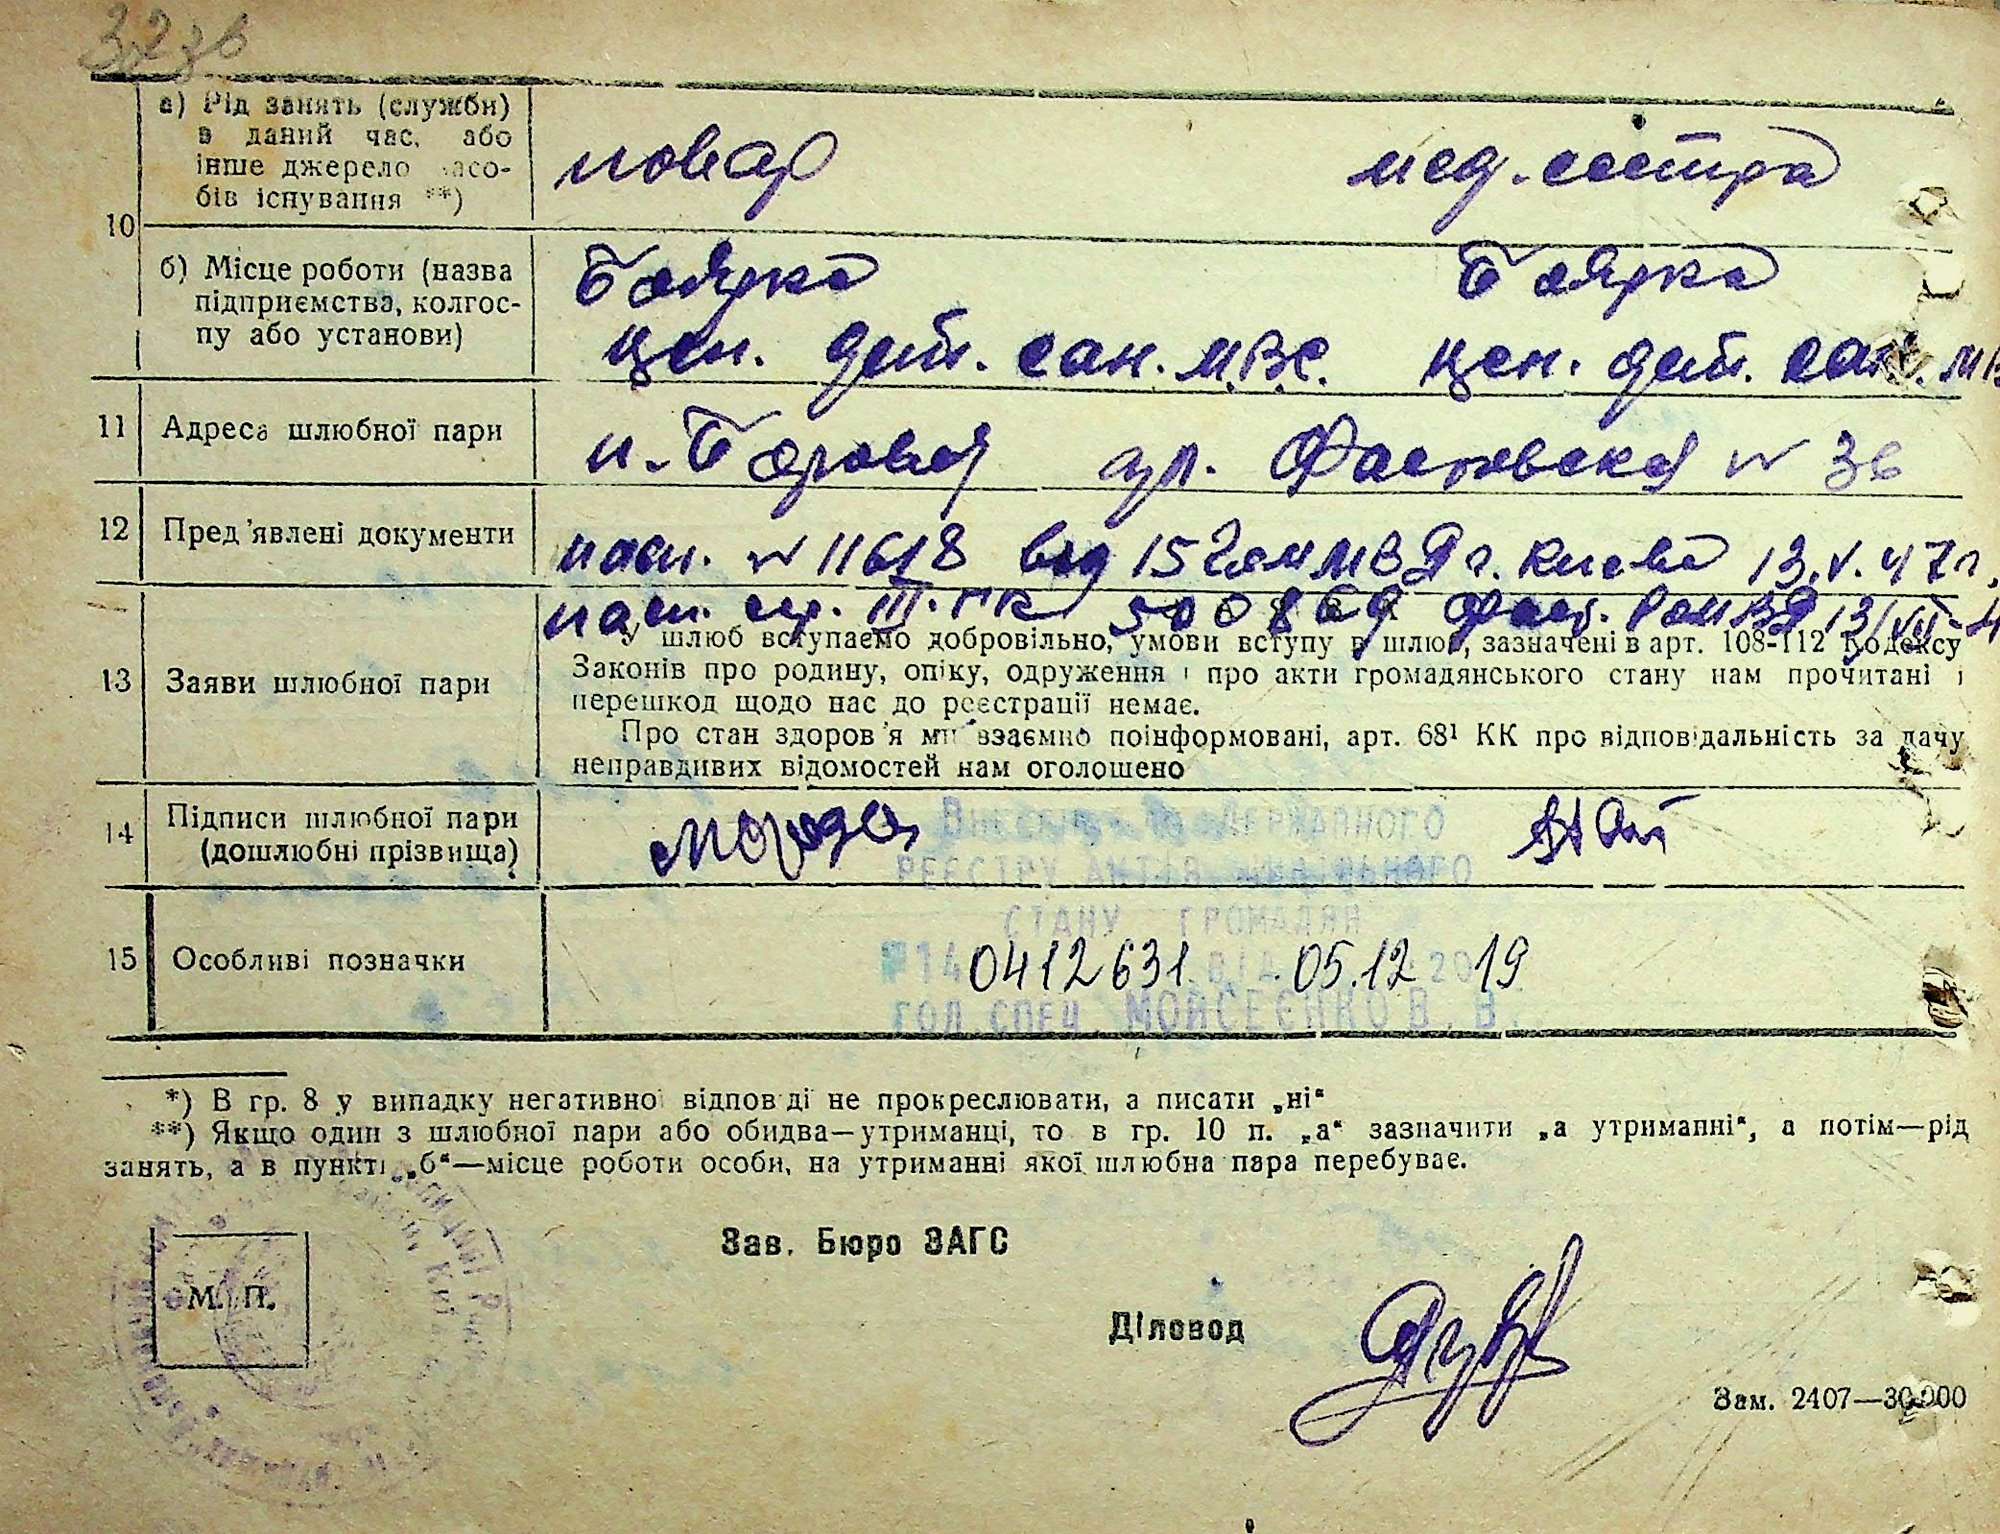 323в
10
а) Рід занять (служби)
в даний час, або
інше джерело засо-
бів існування **)
повар
мед. сестра
б) Місце роботи (назва
підприємства, колгос-
пу або установи)
Боярка
цен. дет. сан. М.В.С.
Боярка
цен. дет. сан. МВ
11
Адреса шлюбної пари
п. Боровая ул. Фастовская № 36
12
Пред'явлені документи
пасп. № 11618 выд 15 2ям МВД г. Киева 13.V.47г.
пасп. сер. III-ГК 500869 Фаст. РОМВД 13/VII-4
13
Заяви шлюбної пари
У шлюб вступаємо добровільно, умови вступу в шлюб, зазначені в арт. 108-112 Кодексу
Законів про родину, опіку, одруження і про акти громадянського стану нам прочитані і
перешкод щодо нас до реєстрації немає.
Про стан здоров'я ми взаємно поінформовані, арт. 68¹ КК про відповідальність за дачу
неправдивих відомостей нам оголошено
14
Підписи шлюбної пари
(дошлюбні прізвища)
Внесено до Державного
реєстру актів цивільного
стану громадян
15
Особливі позначки
№ 140412631 від 05.12 2019
гол. спец. Мойсеєнко В. В.
*) В гр. 8 у випадку негативної відповіді не прокреслювати, а писати „ні“
**) Якщо один з шлюбної пари або обидва—утриманці, то в гр. 10 п. „а“ зазначити „а утриманні“, а потім—рід
занять, а в пункті „б“—місце роботи особи, на утриманні якої шлюбна пара перебуває.
Зав. Бюро ЗАГС
М. П.
Діловод
Зам. 2407—30.000